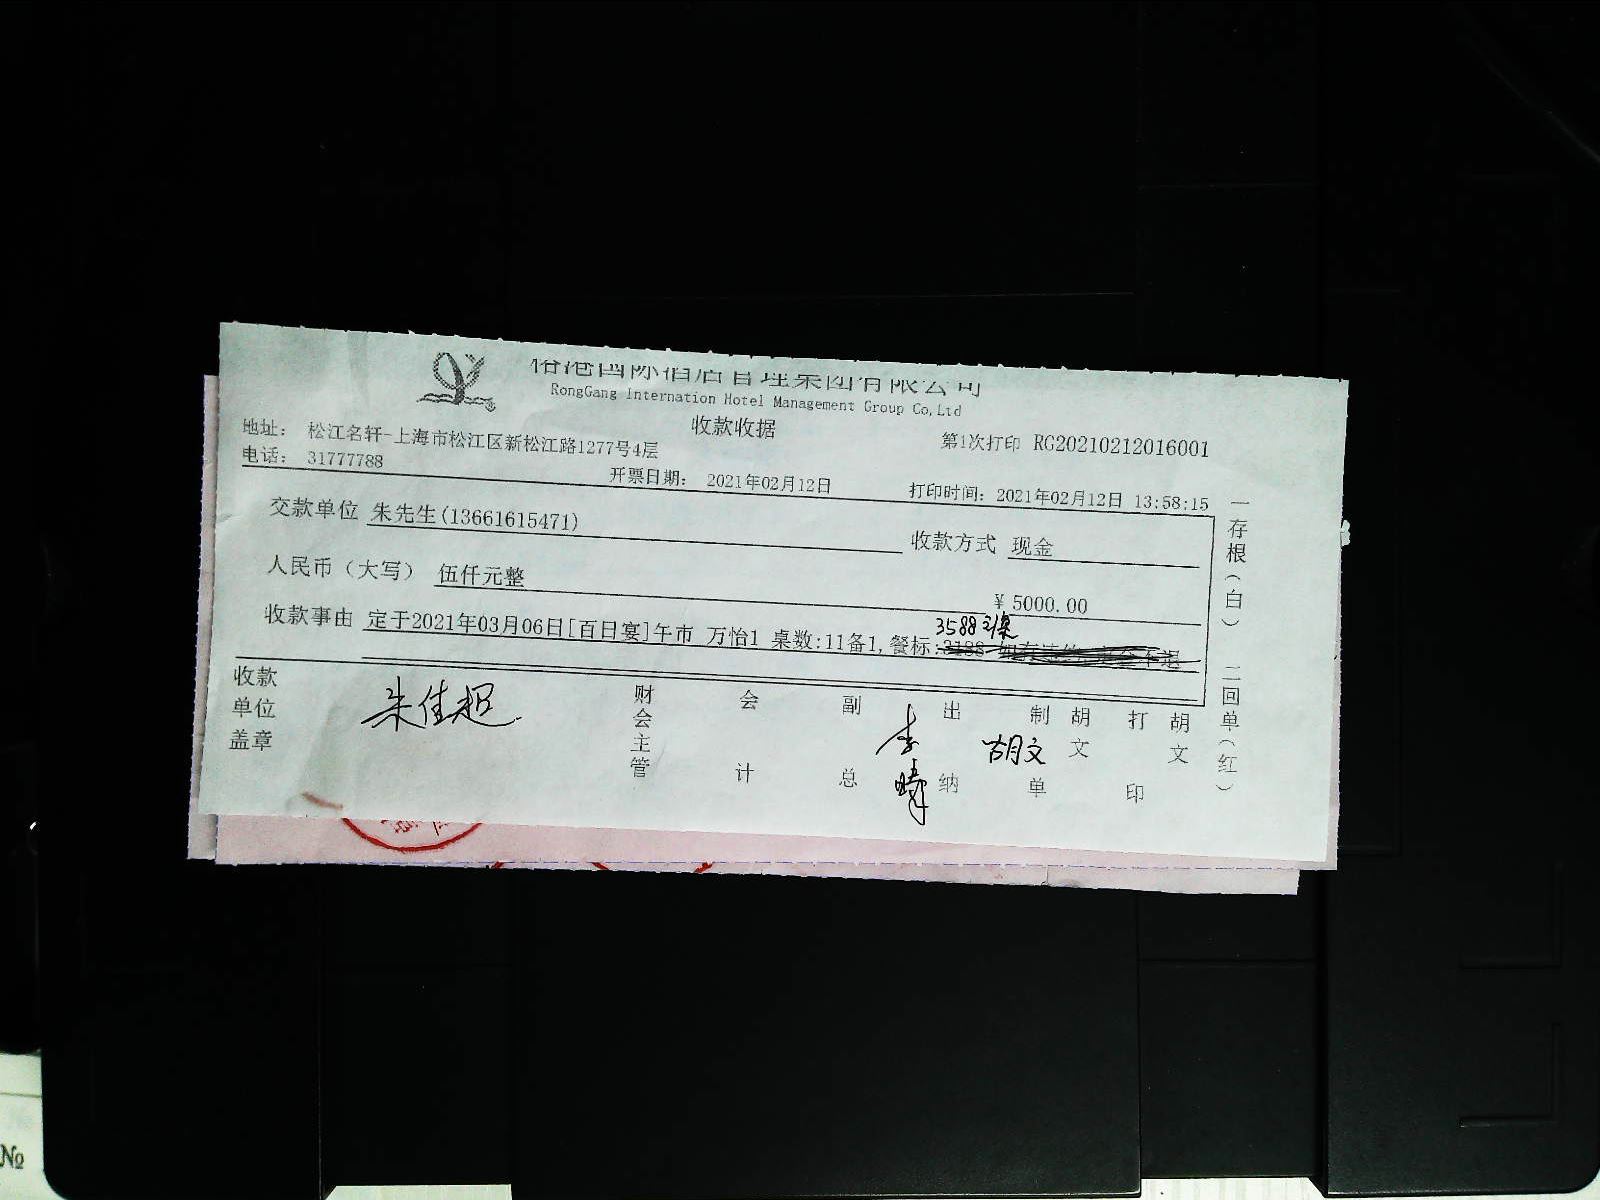 裕港国际酒店管理集团有限公司
RongGang Internation Hotel Management Group Co,Ltd
收款收据
地址: 松江名轩-上海市松江区新松江路1277号4层
第1次打印 RG20210212016001
电话: 31777788
开票日期: 2021年02月12日
打印时间: 2021年02月12日 13:58:15
交款单位 朱先生(13661615471)
收款方式 现金
人民币（大写） 伍仟元整
¥ 5000.00
3588
收款事由 定于2021年03月06日[百日宴]午市 万怡1 桌数:11备1,餐标:3188
收款单位盖章 朱佳超
财会主管
会计
副总
李
出纳
胡文
制单
胡文
打印
胡文
一存根(白) 二回单(红)
№